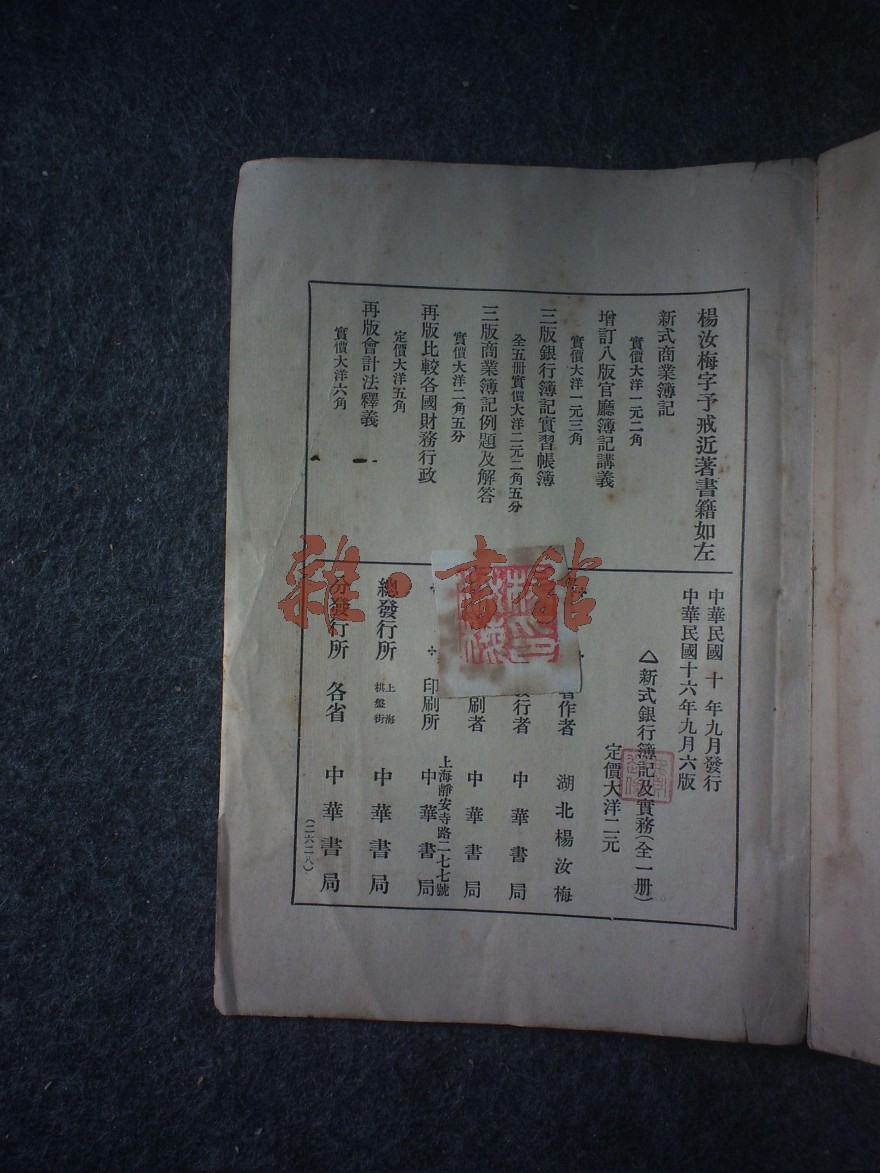 楊汝梅字予戒近著書籍如左
新式商業簿記
實價大洋一元二角
增訂八版官廳簿記講義
實價大洋一元三角
三版銀行簿記實習帳簿
全五册實價大洋二元二角五分
三版商業簿記例題及解答
實價大洋二角五分
再版比較各國財務行政
定價大洋五角
再版會計法釋義
實價大洋六角
中華民國十年九月發行
中華民國十六年九月六版
△新式銀行簿記及實務(全一册)
定價大洋二元
著作者 湖北楊汝梅
發行者 中華書局
刷者 中華書局
上海靜安寺路二七七號
印刷所 中華書局
總發行所 上海棋盤街 中華書局
分發行所 各省 中華書局
(二六二八)
雜·書館